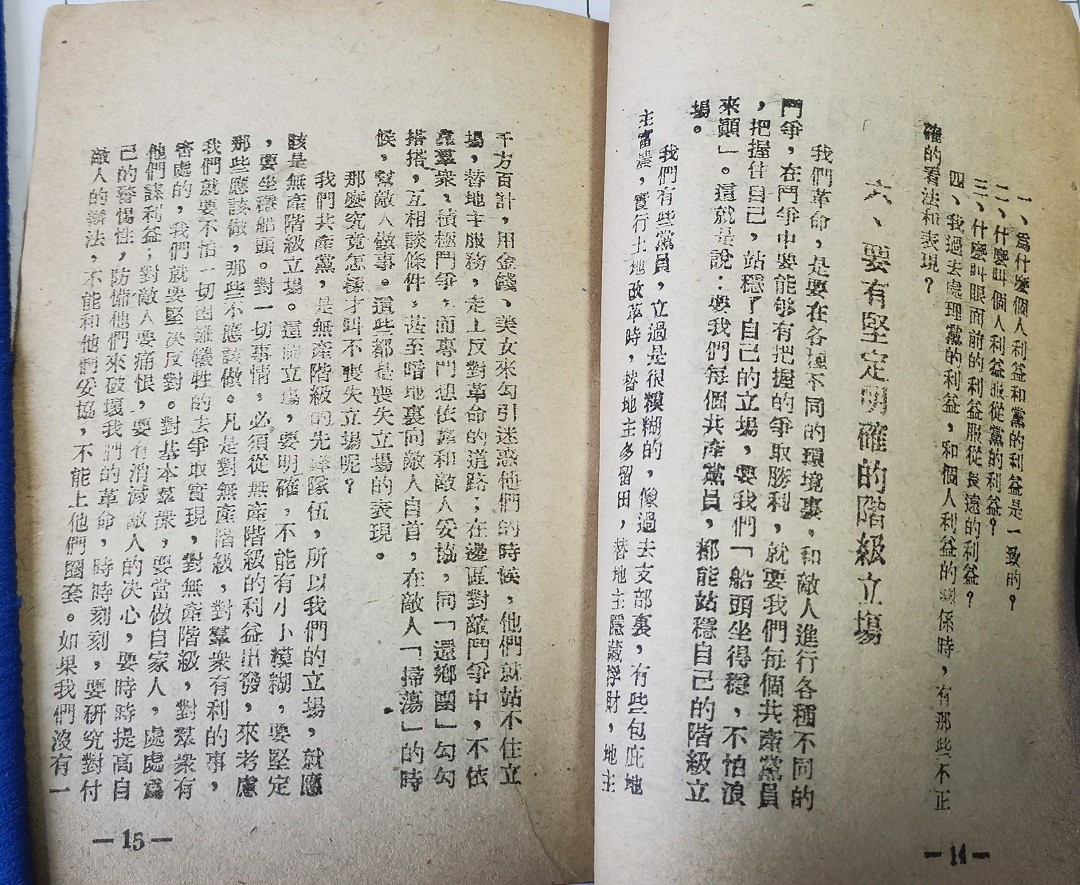 一、爲什麽個人利益和黨的利益是一致的？
二、什麽叫個人利益服從黨的利益？
三、什麽叫眼面前的利益服從長遠的利益？
四、我過去處理黨的利益，和個人利益的關係時，有那些不正
確的看法和表現？
六、要有堅定明確的階級立場
我們革命，是要在各種不同的環境裏，和敵人進行各種不同的
鬥爭，在鬥爭中要能够有把握的爭取勝利，就要我們每個共產黨員
，把握住自己，站穩了自己的立場，要我們「船頭坐得穩，不怕浪
來顚」。這就是說：要我們每個共產黨員，都能站穩自己的階級立
場。
我們有些黨員，立過是很糢糊的，像過去支部裏，有些包庇地
主富農，實行土地改革時，替地主多留田，替地主隱藏浮財，地主
—14—
千方百計，用金錢、美女來勾引迷惑他們的時候，他們就站不住立
場，替地主服務，走上反對革命的道路，在邊區對敵鬥爭中，不依
靠羣衆，積極鬥爭，而專門想依靠和敵人妥協，同「還鄉團」勾勾
搭搭，互相談條件，甚至暗地裏向敵人自首，在敵人「掃蕩」的時
候，幫敵人做事。這些都是喪失立場的表現。
那麽究竟怎樣才叫不喪失立場呢？
我們共產黨，是無產階級的先鋒隊伍，所以我們的立場，就應
該是無產階級立場。這個立場，要明確，不能有小小糢糊，要堅定
，要坐穩船頭。對一切事情，必須從無產階級的利益出發，來考慮
那些應該做，那些不應該做。凡是對無產階級，對羣衆有利的事，
我們就要不怕一切困難犧牲的去爭取實現，對無產階級，對羣衆有
害處的，我們就要堅決反對。對基本羣衆，要當做自家人，處處爲
他們謀利益；對敵人要痛恨，要有消滅敵人的决心，要時時提高自
己的警惕性，防備他們來破壞我們的革命，時時刻刻，要研究對付
敵人的辦法，不能和他們妥協，不能上他們圈套。如果我們沒有一
—15—